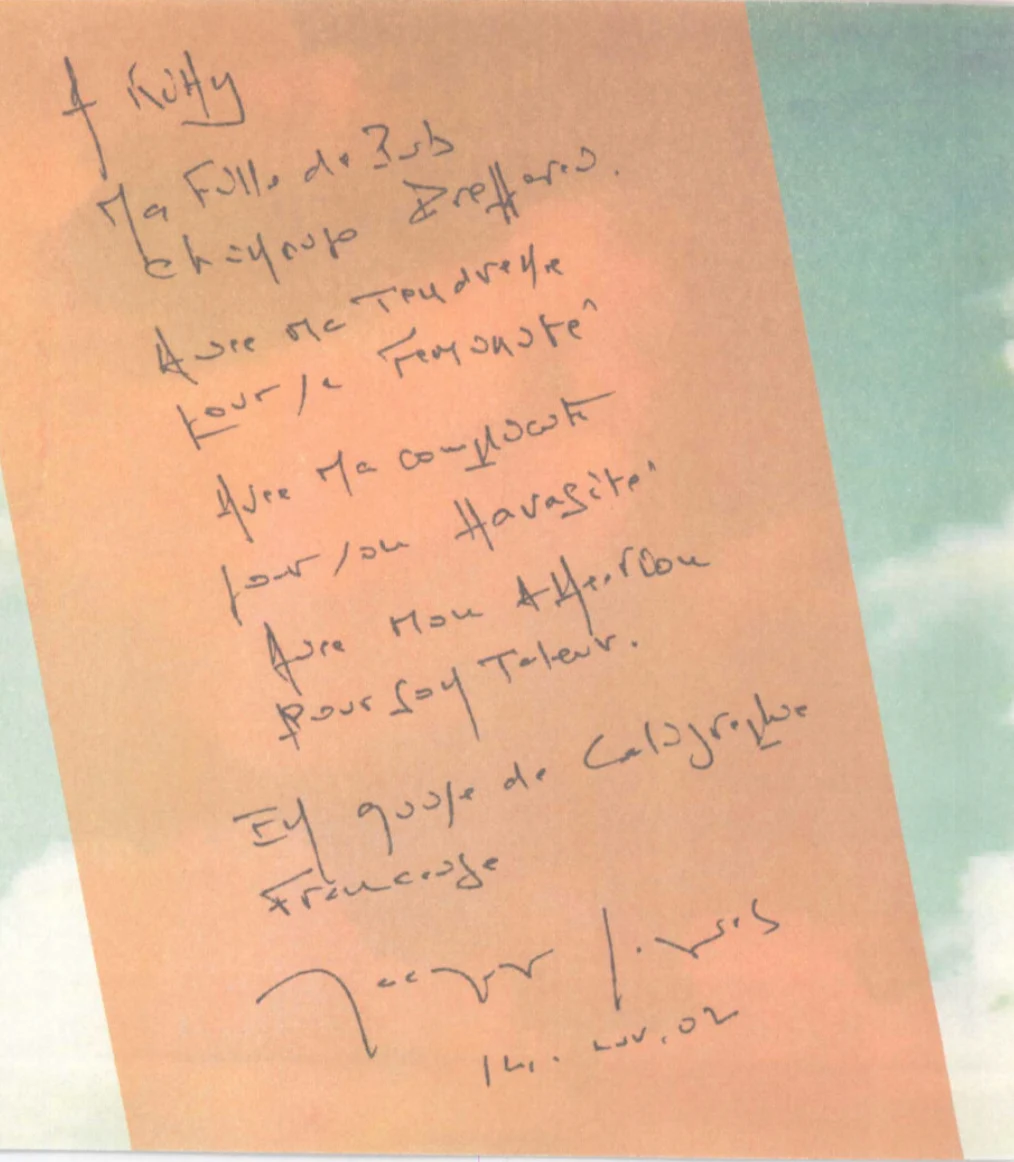 A Kitty
Ma Fille de Pub
chinoise Préférée.
Avec ma Tendresse
pour sa Féminité
Avec Ma complicité
pour son Havasité
Avec Mon Affection
pour son Talent.
En guise de Caligraphie
Française
Jacques
14. nov. 02